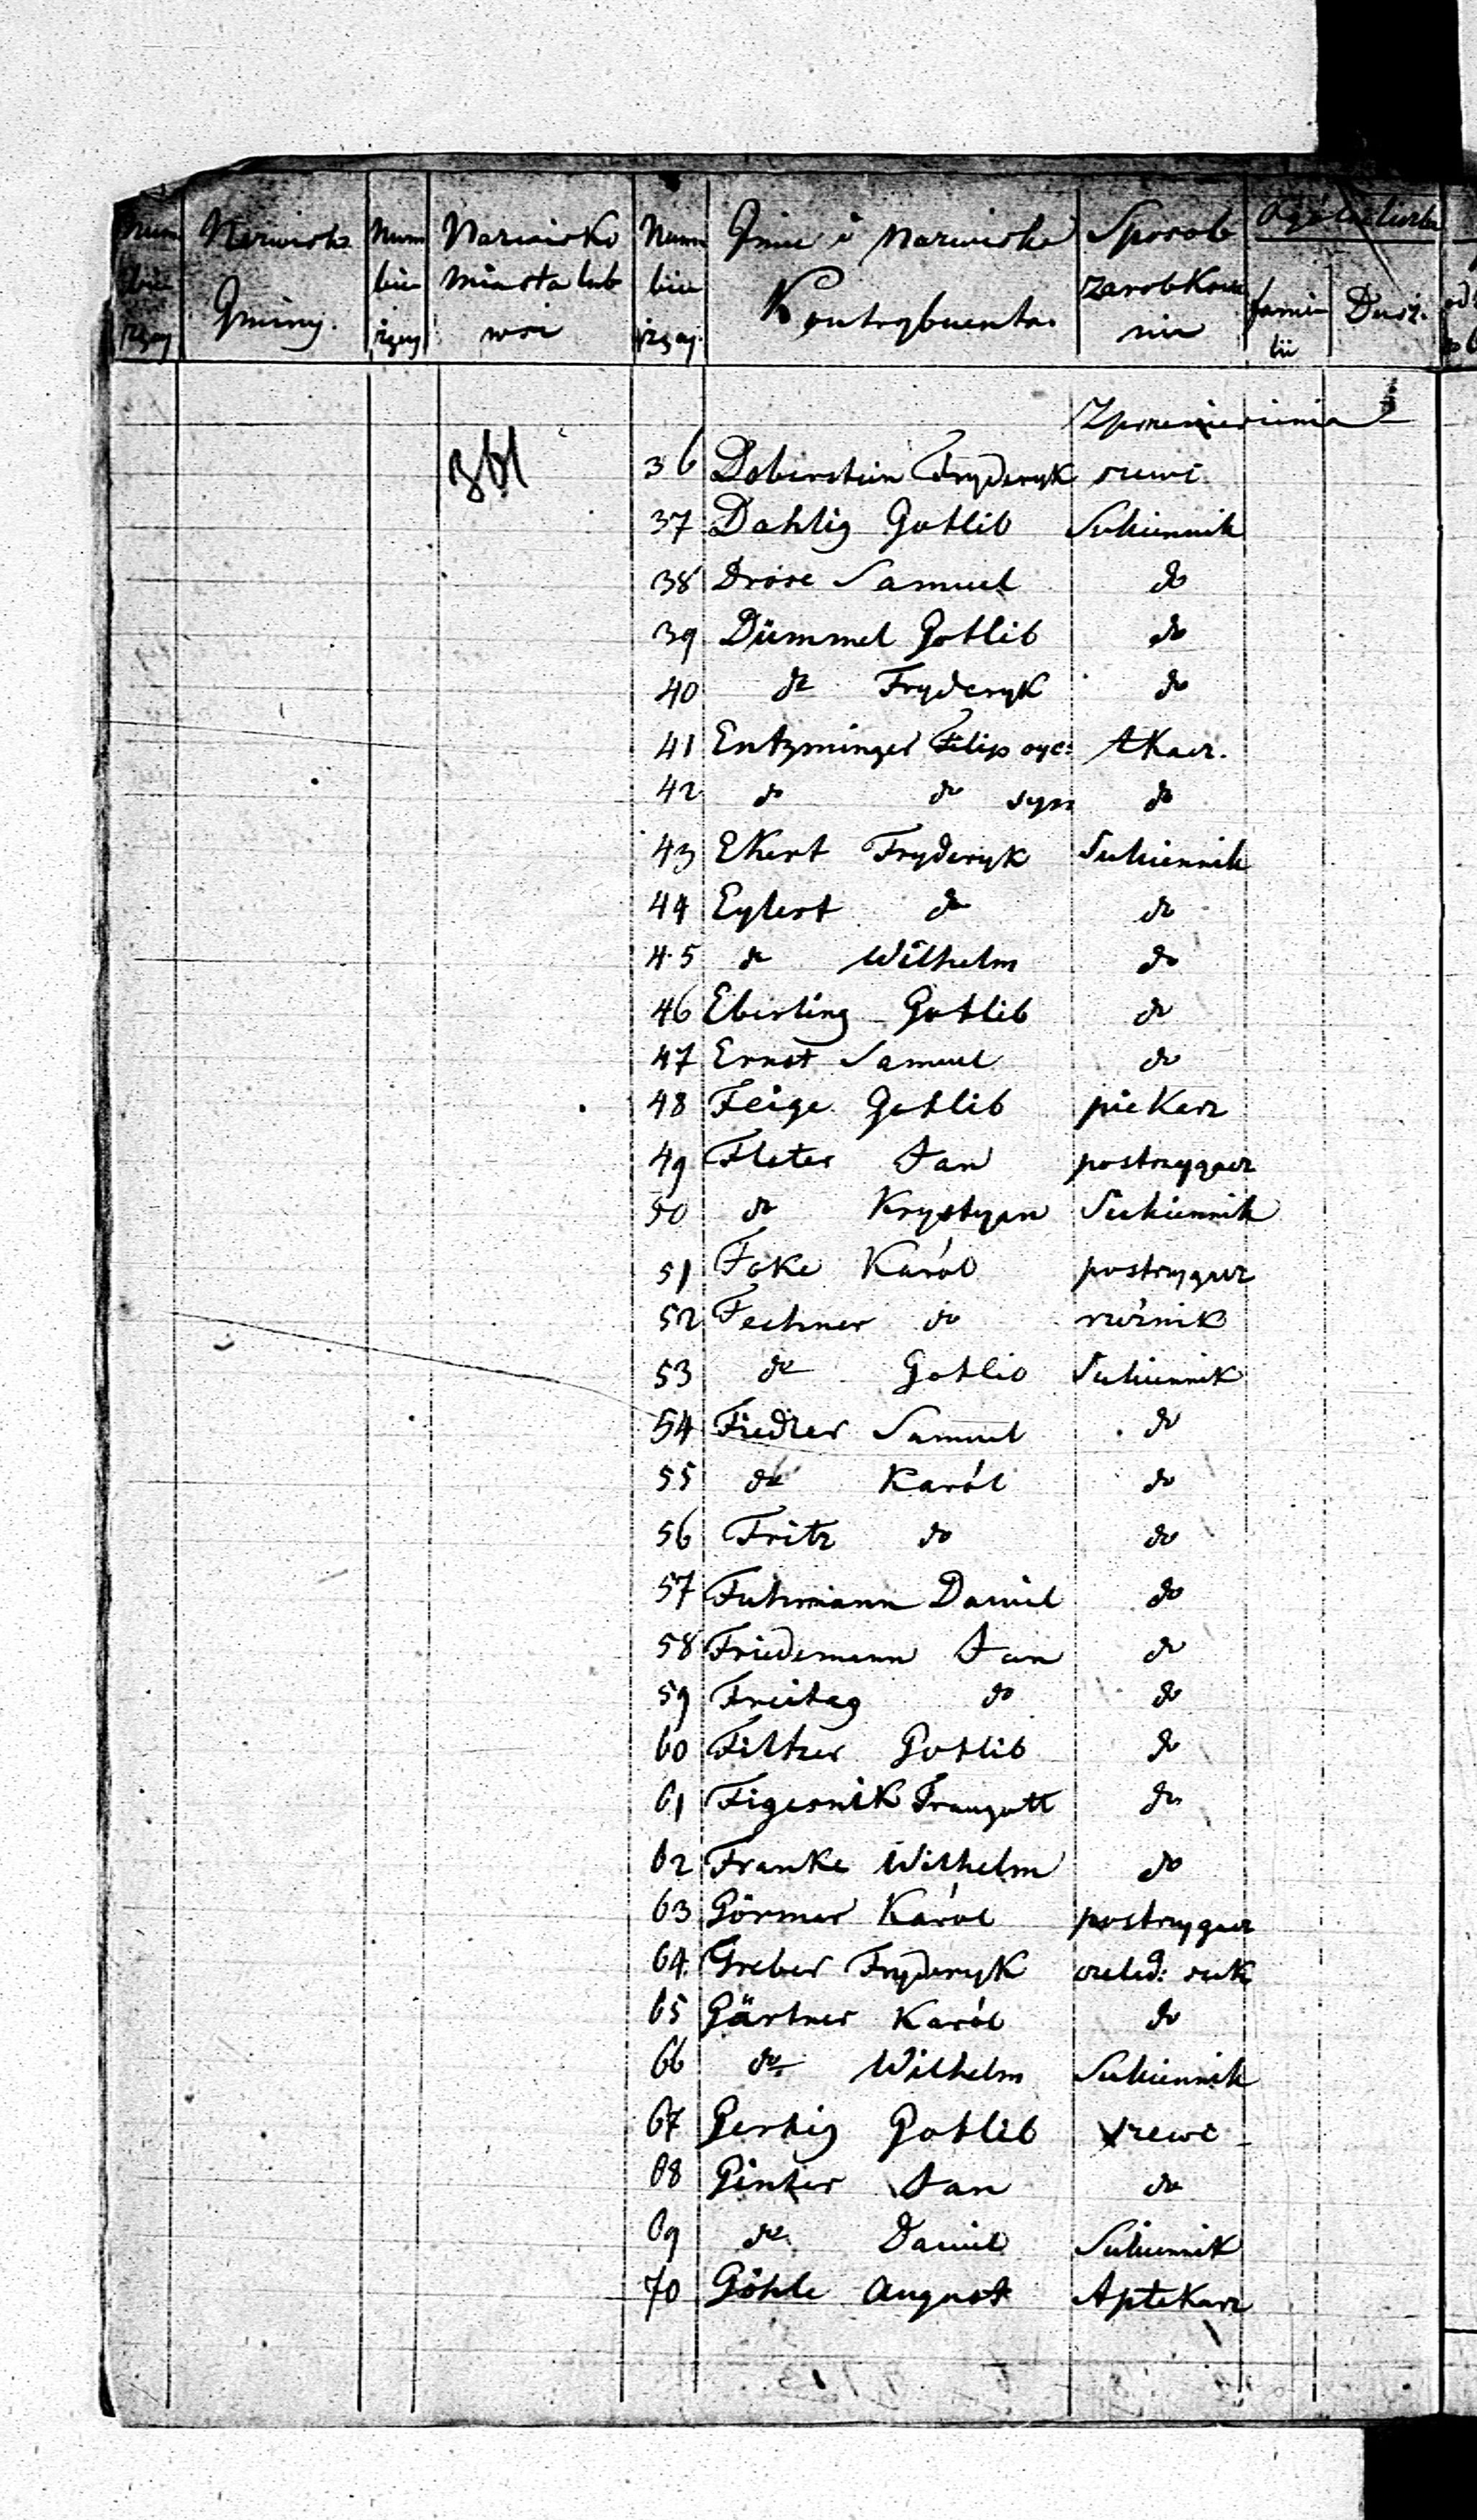 Num Nazwisko Num Nazwisko Num Jmie i Nazwisko Sposob Ogół liczba
bie bie miasta lub bie zarobkowa
rzący Gminy. rzący wsi rzący. Kontrybuenta. nia famie Dusz.
lii
Zprzeniesienia
36 Doberstein Fryderyk szewc
37 Dahlig Gotlib Sukiennik
38 Dröse Samuel do
39 Dümmel Gotlib do
40 do Fryderyk do
41 Entzminger Filip oyc: tkacz.
42 do do syn do
43 Ekert Fryderyk Sukiennik
44 Eylert do do
45 do Wilhelm do
46 Eberling Gotlib do
47 Ernst Samuel do
48 Feige Gotlib piekarz
49 Fleter Jan postrzygacz
50 do Krystyan Sukiennik
51 Foke Karól postrzygacz
52 Fechner do rzeźnik
53 do Gotlib Sukiennik
54 Fiedler Samuel do
55 do Karól do
56 Fritz do do
57 Fuhrmann Daniel do
58 Friedemann Jan do
59 Freitag do do
60 Filtzer Gotlib do
61 Figesnik Traugott do
62 Franke Wilhelm do
63 Görmer Karól postrzygacz
64. Greber Fryderyk czelad: suk
65 Gärtner Karól do
66 do Wilhelm Sukiennik
67 Gertig Gotlib szewc
68 Ginter Jan do
69 do Daniel Sukiennik
70 Göhle August Aptekarz